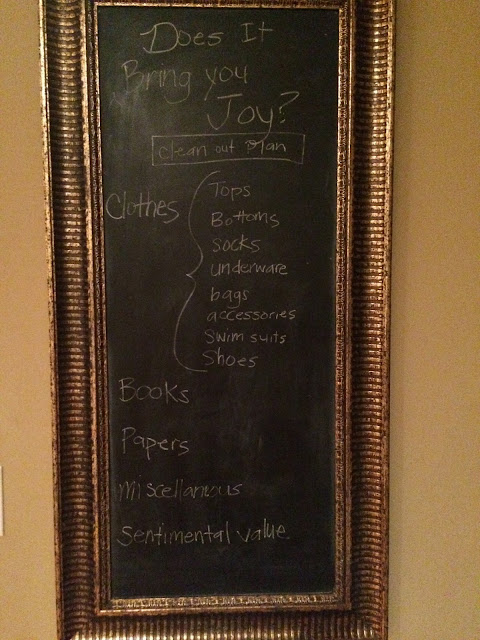 Does It
Bring you
Joy?
Clean out Plan
Clothes
Tops
Bottoms
Socks
underware
bags
accessories
Swim suits
Shoes
Books
Papers
Miscellanious
Sentimental value